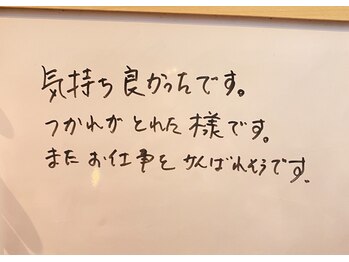 気持ち良かったです。
つかれがとれた様です。
またお仕事をがんばれそうです。